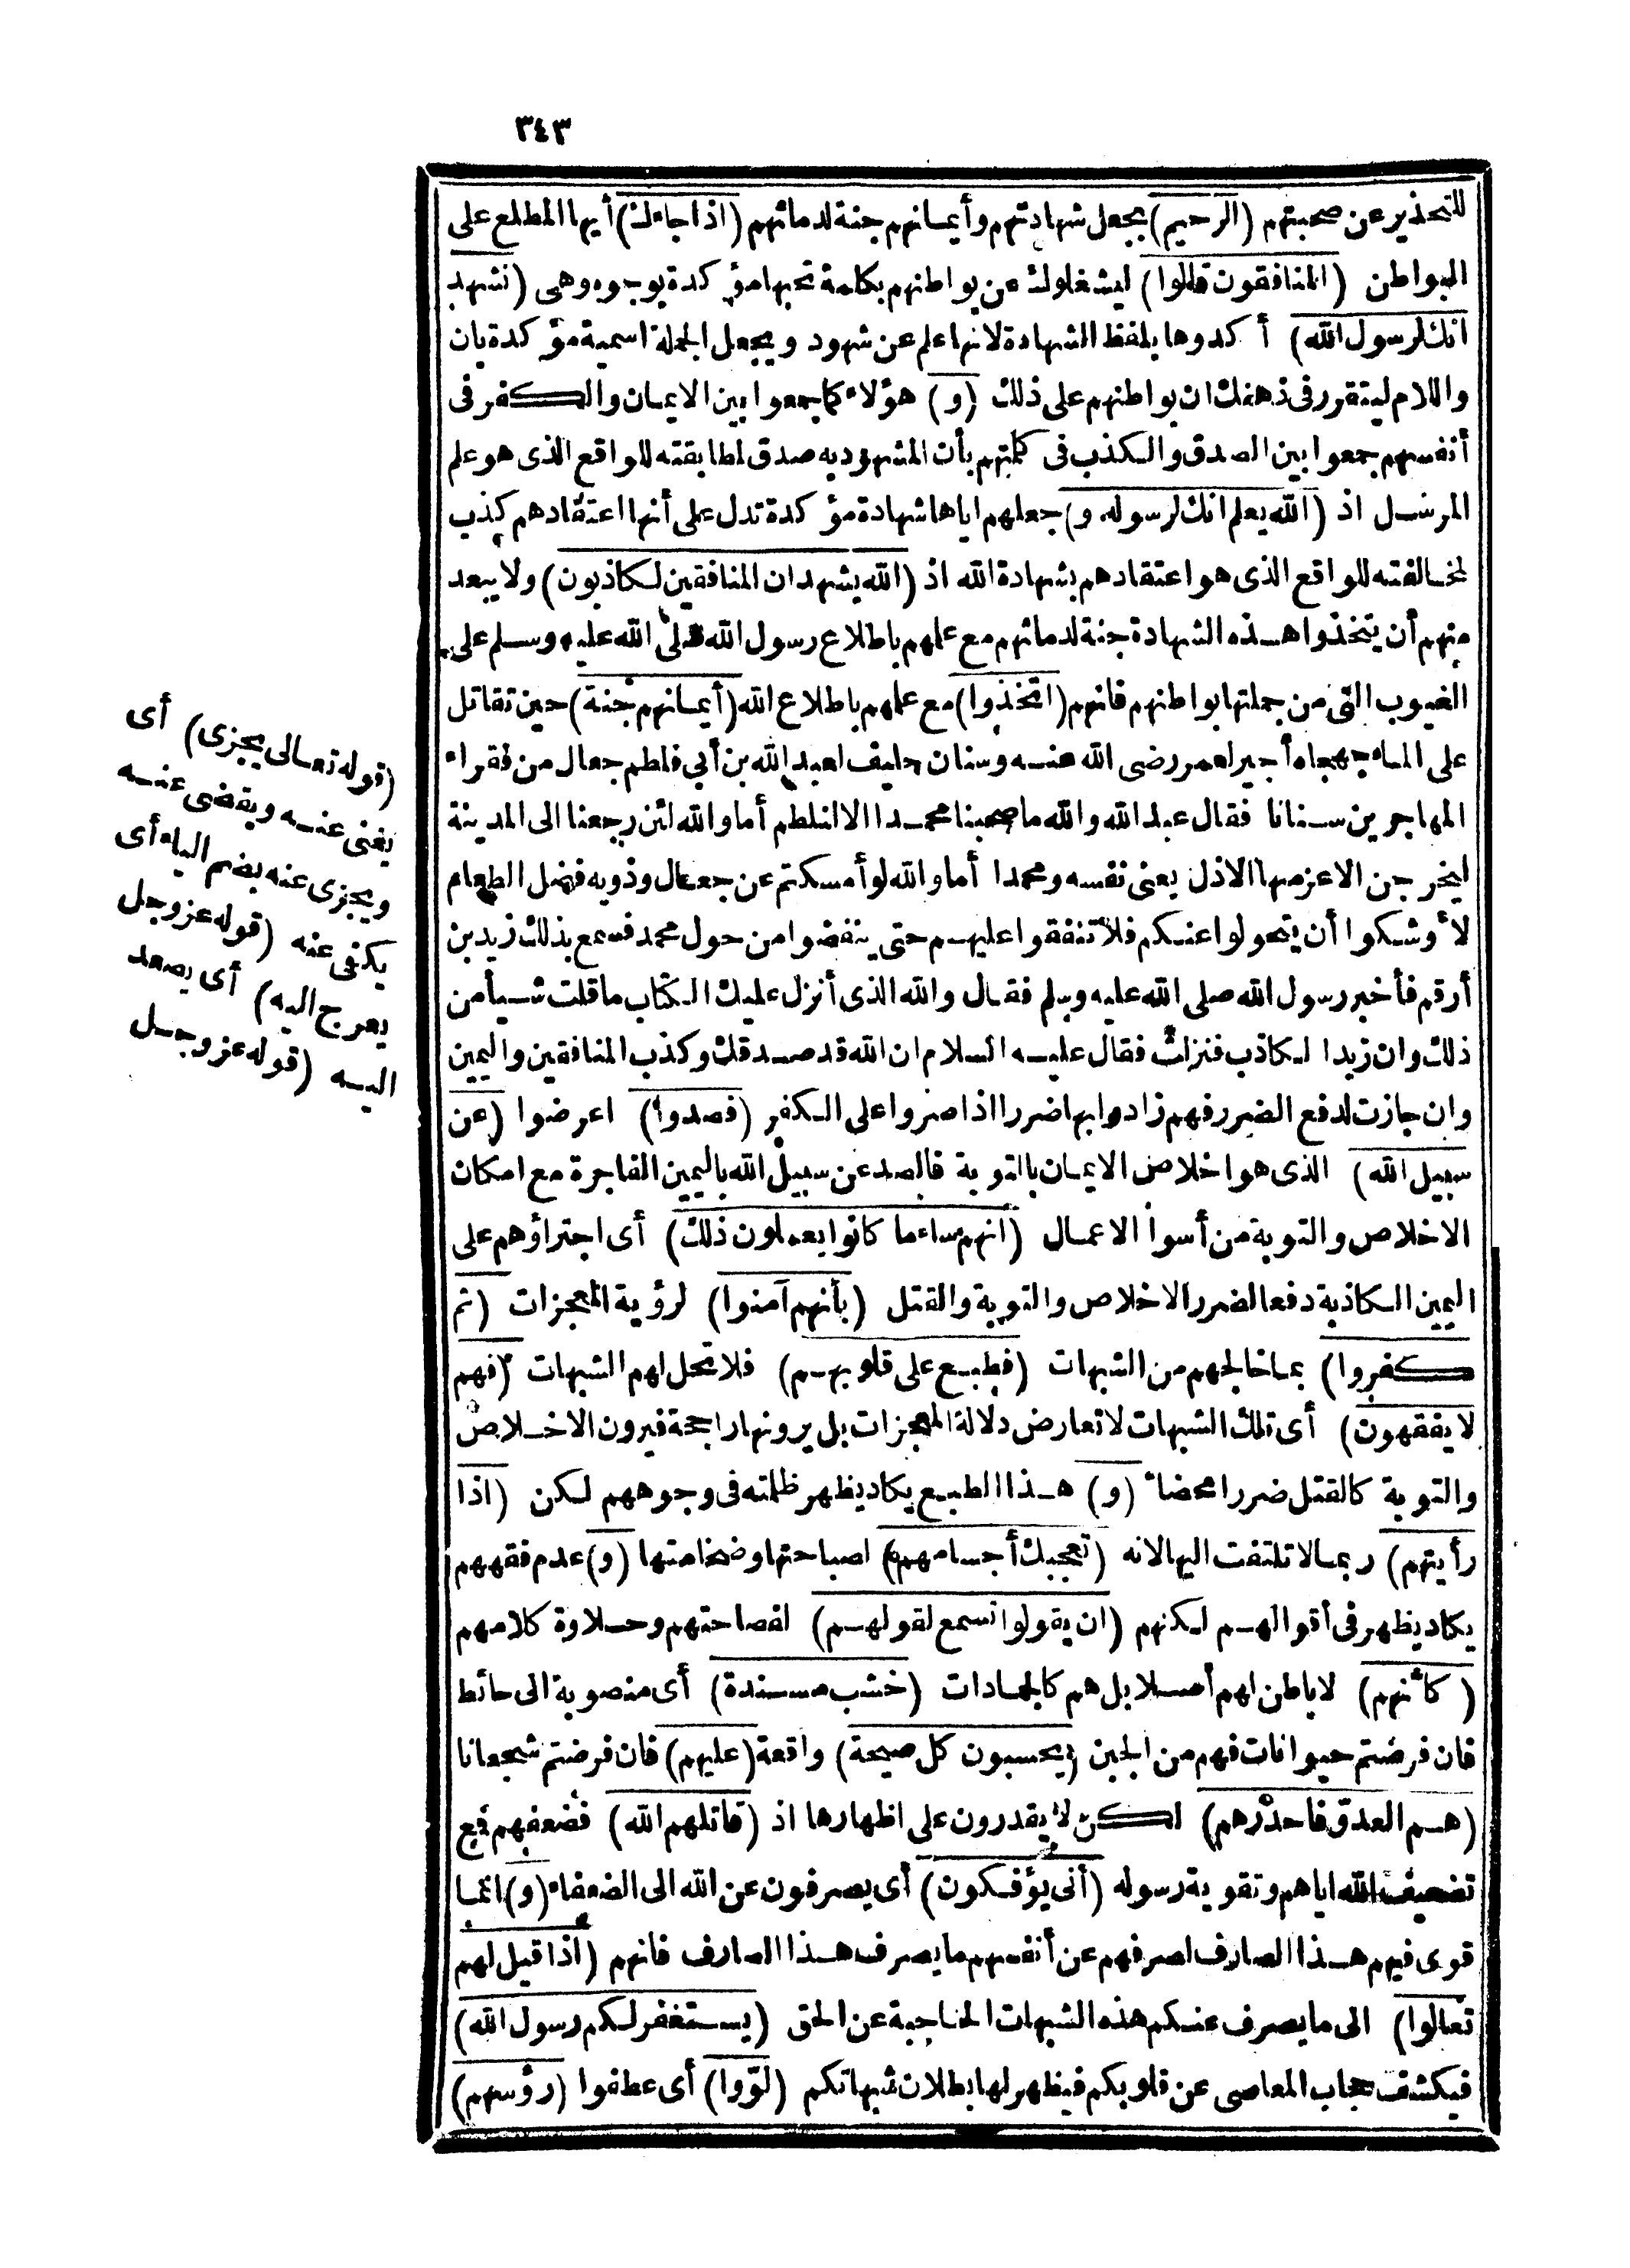 ٣٤٣
للتحذير عن صحبتهم (الرحيم) بجعل شهادتهم وأيمانهم جنة لدمائهم (اذا جاءك) أيها المطلع على
البواطن (المنافقون قالوا) ليشغلوك عن بواطنهم بكلمة تحبها مؤكدة بوجوه وهى (نشهد
انك لرسول الله) أكدوها بلفظ الشهادة لانها علم عن شهود وبجعل الجملة اسمية مؤكدة بان
واللام ليتقرر فى ذهنك ان بواطنهم على ذلك (و) هؤلاء كما جمعوا بين الايمان والكفر فى
أنفسهم جمعوا بين الصدق والكذب فى كلمتهم بأن المشهود به صدق لمطابقته للواقع الذى هو علم
المرسل اذ (الله يعلم انك لرسوله و) جعلهم اياها شهادة مؤكدة تدل على أنها اعتقادهم كذب
لمخالفته للواقع الذى هو اعتقادهم بشهادة الله اذ (الله يشهد ان المنافقين لكاذبون) ولا يبعد
منهم أن يتخذوا هذه الشهادة جنة لدمائهم مع علمهم باطلاع رسول الله صلى الله عليه وسلم على
الغيوب التى من جملتها بواطنهم فانهم (اتخذوا) مع علمهم باطلاع الله (أيمانهم جنة) حين تقاتل
على الماء جهجاه أجير لعمر رضى الله عنه وسنان حليف لعبد الله بن أبي فلطم جعال من فقراء
المهاجرين سنانا فقال عبد الله والله ما صحبنا محمدا الا لنلطم أما والله لئن رجعنا الى المدينة
ليخرجن الاعز منها الاذل يعنى نفسه ومحمدا أما والله لو أمسكتم عن جعال وذويه فضل الطعام
لأوشكوا أن يتحولوا عنكم فلا تنفقوا عليهم حتى ينفضوا من حول محمد فسمع بذلك زيد بن
أرقم فأخبر رسول الله صلى الله عليه وسلم فقال والله الذى أنزل عليك الكتاب ما قلت شيأ من
ذلك وان زيدا لكاذب فنزلت فقال عليه السلام ان الله قد صدقك وكذب المنافقين واليمين
وان جازت لدفع الضرر فهم زادوا بها ضررا اذا صروا على الكفر (فصدوا) اعرضوا (عن
سبيل الله) الذى هو اخلاص الايمان بالتوبة فالصد عن سبيل الله باليمين الفاجرة مع امكان
الاخلاص والتوبة من أسوا الاعمال (انهم ساء ما كانوا يعملون ذلك) أى اجتراؤهم على
اليمين الكاذبة دفعا لضرر الاخلاص والتوبة والقتل (بأنهم آمنوا) لرؤية المعجزات (ثم
كفروا) بما خالجهم من الشبهات (فطبع على قلوبهم) فلا تحل لهم الشبهات (فهم
لا يفقهون) أى تلك الشبهات لا تعارض دلالة المعجزات بل يرونها راجحة فيرون الاخلاص
والتوبة كالقتل ضررا محضا (و) هذا الطبع يكاد يظهر ظلمته فى وجوههم لكن (اذا
رأيتهم) ربما لا تلتفت اليها لانه (تعجبك أجسامهم) لصباحتها وضخامتها (و) عدم فقههم
يكاد يظهر فى أقوالهم لكنهم (ان يقولوا تسمع لقولهم) لفصاحتهم وحلاوة كلامهم
(كأنهم) لا باطن لهم أصلا بل هم كالجمادات (خشب مسندة) أى منصوبة الى حائط
فان فرضتم حيوانات فهم من الجبن (يحسبون كل صيحة) واقعة (عليهم) فان فرضتم شجعانا
(هم العدوّ فاحذرهم) لكن لا يقدرون على اظهارها اذ (قاتلهم الله) فضعفهم مع
تضعيف الله اياهم وتقوية رسوله (أنى يؤفكون) أى يصرفون عن الله الى الضعفاء (و) انما
قوى فيهم هذا الصارف لصرفهم عن أنفسهم ما يصرف هذا الصارف فانهم (اذا قيل لهم
تعالوا) الى ما يصرف عنكم هذه الشبهات الحاجبة عن الحق (يستغفر لكم رسول الله)
فيكشف حجاب المعاصى عن قلوبكم فيظهر لها بطلان شبهاتكم (لوّوا) أى عطفوا (رؤسهم)
(قوله تعالى يجزى) أى
يغنى عنه ويقضى عنه
ويجزى عنه بضم الياء أى
يكفى عنه (قوله عز وجل
يعرج اليه) أى يصعد
اليه (قوله عز وجل